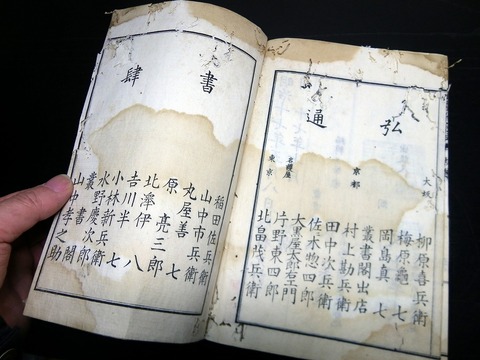 弘通
大阪
柳原喜兵衛
梅原亀七
岡島真七
京都
叢書閣出店
村上勘兵衛
田中次兵衛
惣四郎
名護屋
片野東四郎
東京
北畠茂兵衛
書肆
稲田佐兵衛
山中市兵衛
丸屋善七
原亮三郎
北澤伊八
吉川半七
小林新兵衛
水野慶次郎
叢書閣
山中孝之助